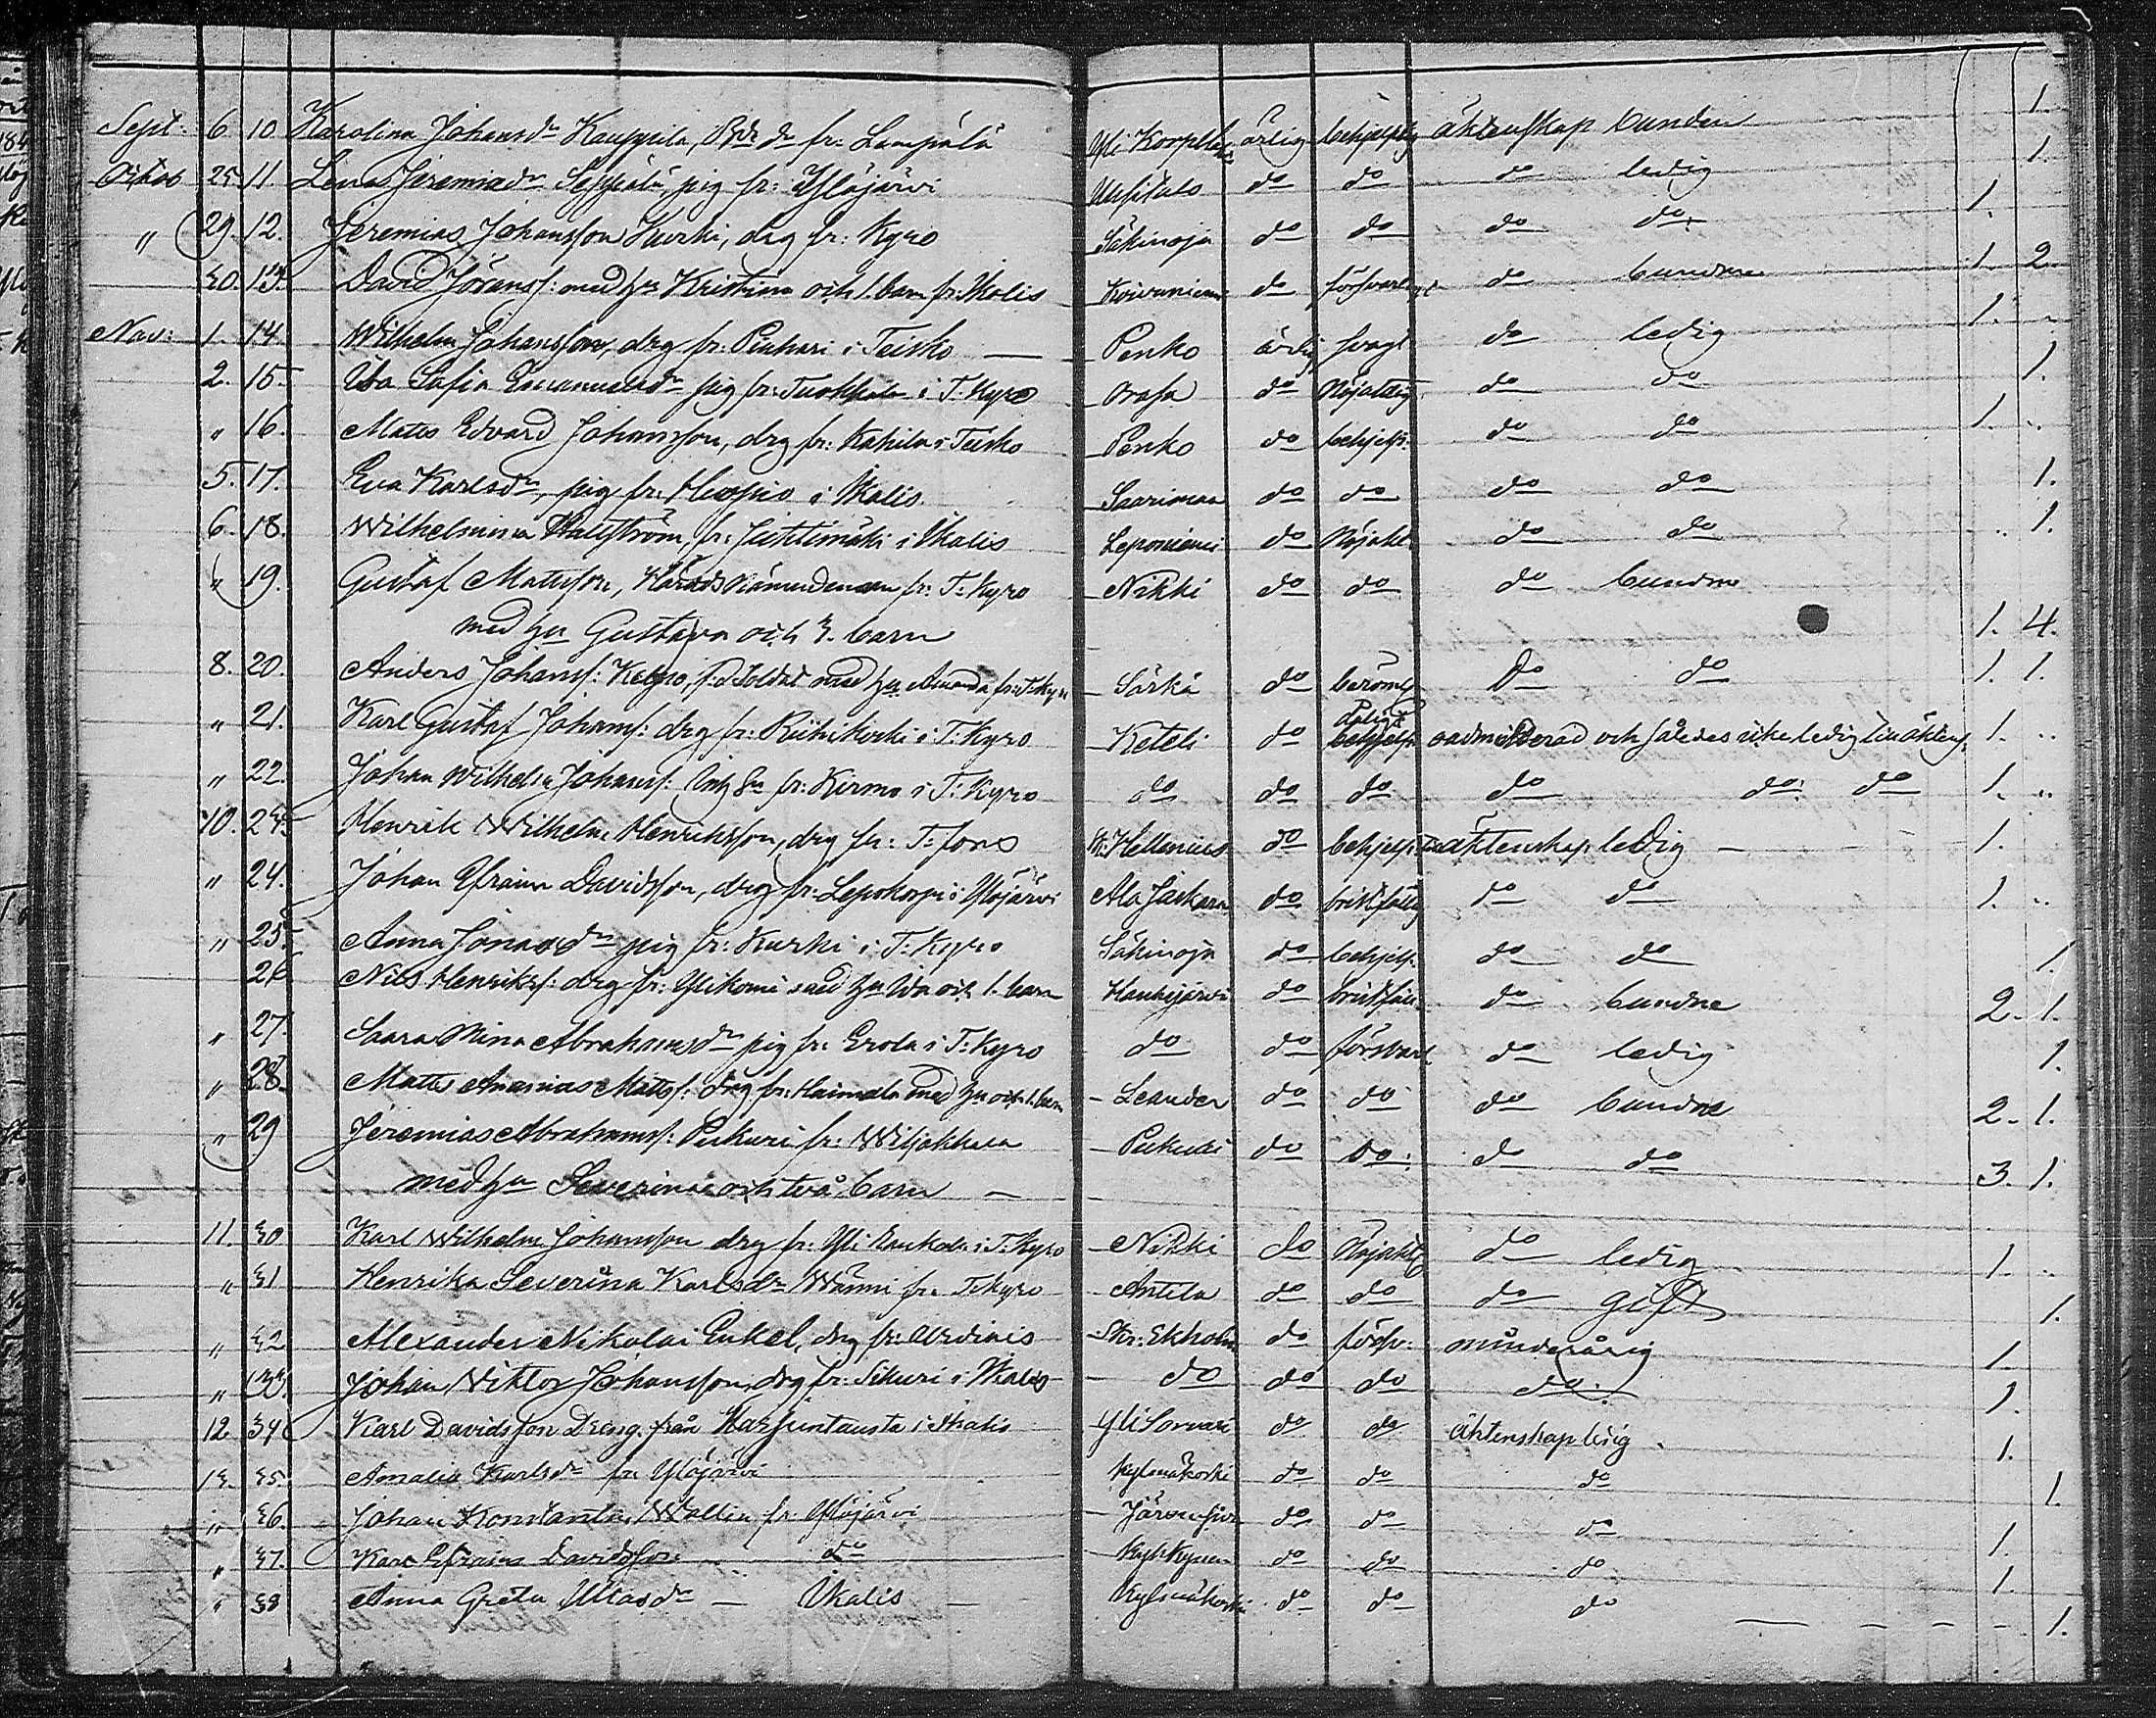 1.
Sept: 6. 10 Karolina Johansdr Kauppila, Bdr dr fr: Lempälä Yli Korpela ärlig behjelplig äktenskap bunden
1.
Octob 25. 11. Lena Jeremiædr Seppälä, pig fr: Ylöjärvi Uusitalo do do do ledig
1.
" 29. 12. Jeremias Johansson Kurki, drg fr: Kyro Säkinoja do do do do
30. 13. David Göranss: med hu Kristina och 1. barn fr: Ikalis Koivuniemi do försvarl do bundne 1. 2
Nov: 1. 14 Wilhelm Johansson, drg fr: Piuhari i Teisko Penko ärlig svagt do ledig 1. "
2. 15. Ida Sofia Emanuelsdr pig fr: Turkkila i T. Kyro Orasa do Nöjaktig do do 1.
" 16. Matts Edvard Johansson, drg fr: Kahila i Teisko Penko do behjelp. do do 1. "
5. 17. Eva Karlsdr, pig fr: Heopio i Ikalis Saarimaa do do do do 1.
6. 18. Wilhelmina Hallström, fr: Juhtimäki i Ikalis Leponiemi do Nöjakt do do " 1.
" 19. Gustaf Mattsson, Härads Nämndeman fr: T. Kyro Nikki do do do bundne
med hu Gustava och 3. barn 1. 4.
8. 20. Anders Johanss: Kelpo, f.d. Soldat med hu Amanda fr: T. Kyro Särkä do beröml do do 1. 1.
" 21. Karl Gustaf Johanss: drg fr: Riihikoski i T. Kyro Keteli do dålig behjelp oadmitterad och således icke ledig till äktensk. 1. "
" 22. Johan Wilhelm Johanss: fr: Kirmo i T. Kyro do do do do do do 1. "
10. 23. Henrik Wilhelm Henriksson, drg fr: T. fors Hellenius do behjelp. äktenskap ledig 1.
" 24. Johan Efraim Davidsson, drg fr: Lepokorpi i Ylöjärvi Ala Jaskara do bristfällig do do 1. "
" 25. Anna Jonasdr pig fr: Kurki i T. Kyro Säkinoja do behjelp. do do 1.
26 Nils Henrikss: drg fr: Ylikomi med hu Ida och 1. barn Haukijärvi do bristfäll. do bundne 2. 1.
" 27. Saara Mina Abrahamsdr pig fr: Erola i T. Kyro do do försvarl do ledig 1.
" 28. Matts Ananias Matts: drg fr: Haimala med hu och 1. barn Leander do do do bundne 2. 1.
" 29 Jeremias Abrahams: Peikuri fr: Wiljakkala Peikuri do do do do
med hu Severina och två barn 3. 1.
11. 30 Karl Wilhelm Johansson drg fr: Yli Raukola i T. Kyro Nikki do Nöjaktig do ledig 1. "
" 31 Henrika Severina Karlsdr Wänni fr: T. Kyro Antila do do do gift 1.
" 32 Alexander Nikolai Enkel, drg fr: Urdiais Skr: Ekholm do försv. minderårig 1.
" 33. Johan Wiktor Johansson, drg fr: Sikuri i Ikalis do do do do 1.
12 34 Karl Davidsson Dreng från Karhuntausta i Ikalis Yli Sorvari do do äktenskap ledig 1.
13. 35. Amalia Karlsdr fr: Ylöjärvi Kylmäkoski do do do 1.
" 36. Johan Konstantin Wallin fr: Ylöjärvi Järvensivu do do do 1.
" 37. Karl Efraim Davidsson do Kyh Kynen do do do 1.
" 38 Anna Greta Mattsdr Ikalis Kylmäkoski do do do 1.